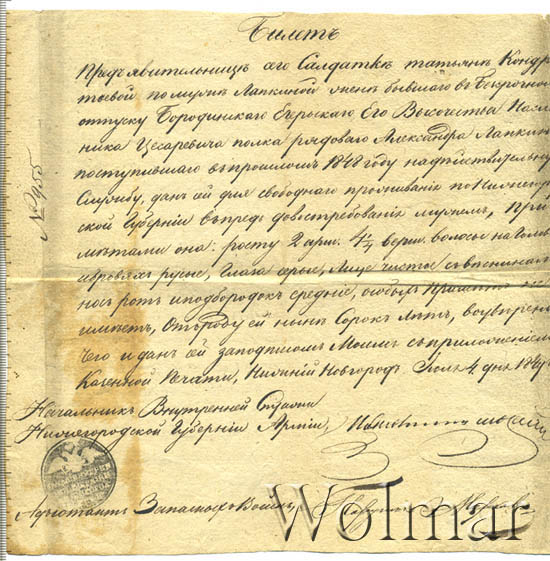 Билетъ
Предъявительницѣ сего Салдаткѣ татьянѣ Кондра
тьевой по мужѣ Лапкиной женѣ бывшаго въ Безсрочномъ
отпуску Бородинскаго Егерскаго Его Высочества Наслѣд
ника Цесаревича полка рядоваго Александра Лапкина
поступившаго въ прошломъ 1848 году надѣйствительную
Службу, данъ ей для свободнаго проживанія по Нижегород
ской Губерніи впредь довостребованія мужемъ, При
мѣтами она: росту 2 арш. 4 верш. волосы на Головѣ
ибровяхъ русые, Глаза серые, Лице чистое
носъ ротъ иподбородокъ средніе, особыхъ примѣтъ не
имѣетъ, Отъроду ей нынѣ Сорокъ Лѣтъ, воувѣреніе
Чего и данъ ей заподписомъ Моимъ съприложеніемъ
Казенной Печати, Нижній Новгородъ Іюль 4 дня 1849
№ 4555
Начальникъ Внутренней Стражи
Нижегородской Губерніи Арміи
Адъютантъ
Wolmar